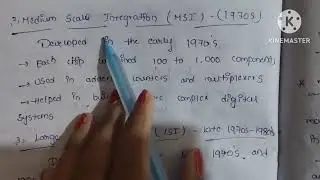 2. Medium Scale Integration (MSI) - (1970s)
Developed in the early 1970's
→ Each chip 100 to 1,000 components
→ Used in counters and multiplexers
→ Helped in complex digital
systems
3. Large (LSI) - 1970s-1980s
1970's and
KINEMASTER